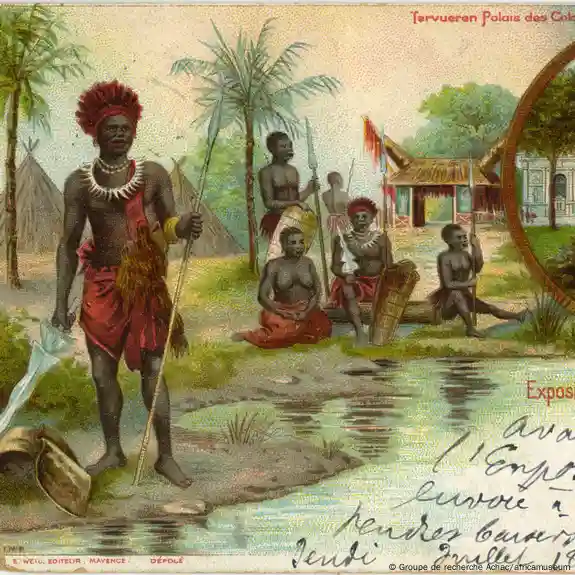 Tervueren Palais des Col
Expos
ava
l'Expo
envoie à
tendres baisers
Jeudi Juillet 19
E. WEIL, EDITEUR, MAYENCE. DÉPOLÉ
© Groupe de recherche Achac/africamuseum